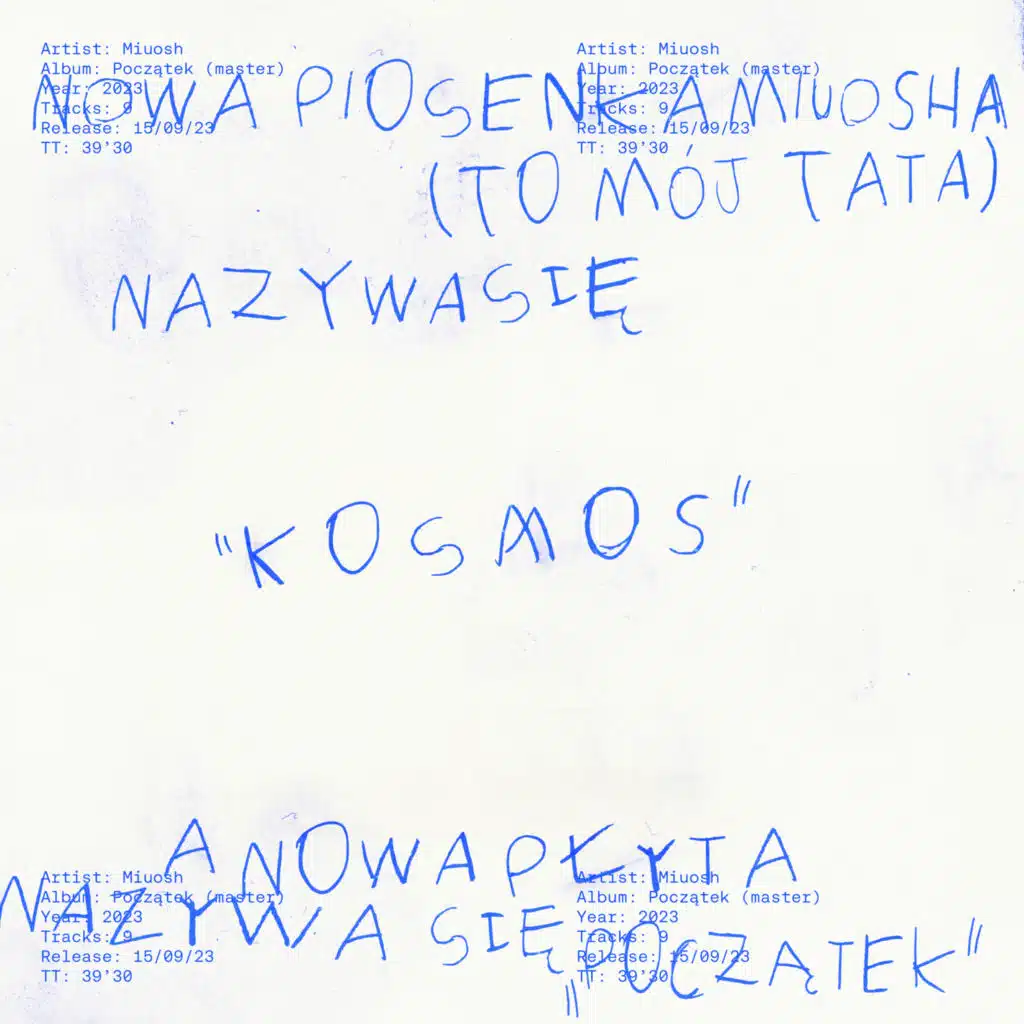 Artist: Miuosh
Album: Początek (master)
Year: 2023
Tracks: 9
Release: 15/09/23
TT: 39'30
Artist: Miuosh
Album: Początek (master)
Year: 2023
Tracks: 9
Release: 15/09/23
TT: 39'30
NOWA PIOSENKA MIUOSHA
(TO MÓJ TATA)
NAZYWA SIĘ
"KOSMOS"
A NOWA PŁYTA
NAZYWA SIĘ
"POCZĄTEK"
Artist: Miuosh
Album: Początek (master)
Year: 2023
Tracks: 9
Release: 15/09/23
TT: 39'30
Artist: Miuosh
Album: Początek (master)
Year: 2023
Tracks: 9
Release: 15/09/23
TT: 39'30